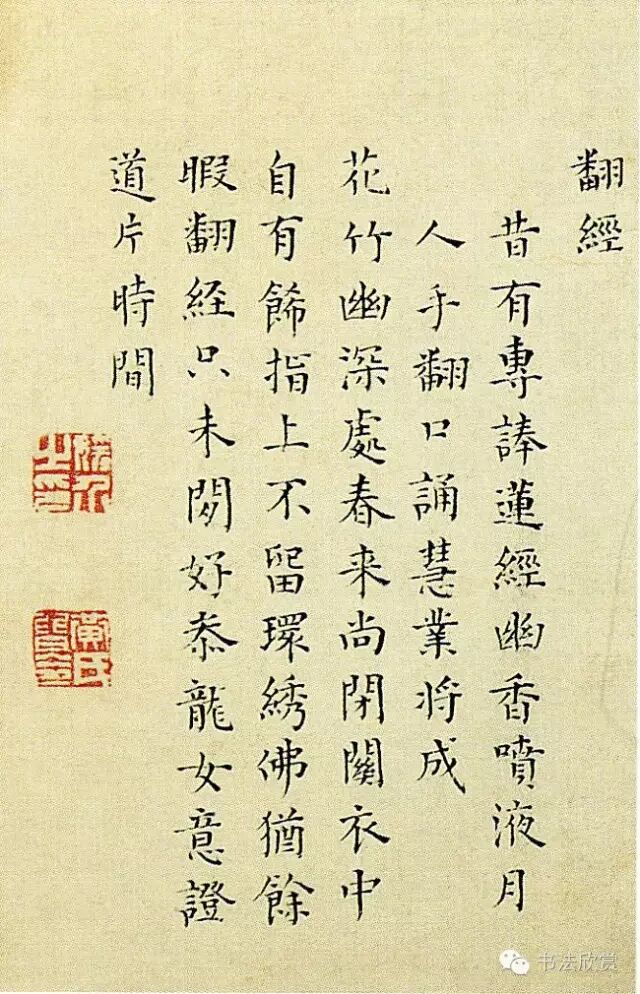 翻經
昔有專蓮經幽香噴液月
人手翻口誦慧業將成
花竹幽深處春来尚閉關衣中
自有餙指上不留環綉佛猶餘
暇翻経只未閑好叅龍女意證
道片時間
书法欣赏